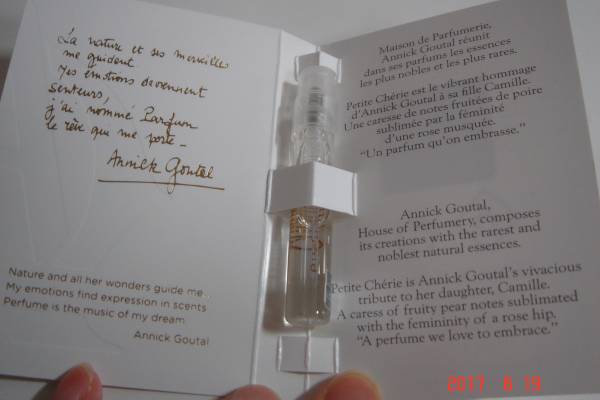 La nature et ses merveilles
me guident
Mes émotions deviennent
senteurs,
j'ai nommé Parfum
le rêve qui me porte_
Annick Goutal
Nature and all her wonders guide me.
My emotions find expression in scents
Perfume is the music of my dream.
Annick Goutal
Maison de Parfumerie,
Annick Goutal réunit
dans ses parfums les essences
les plus nobles et les plus rares.
Petite Chérie est le vibrant hommage
d'Annick Goutal à sa fille Camille.
Une caresse de notes fruitées de poire
sublimée par la féminité
d'une rose musquée.
"Un parfum qu'on embrasse."
Annick Goutal,
House of Perfumery, composes
its creations with the rarest and
noblest natural essences.
Petite Chérie is Annick Goutal's vivacious
tribute to her daughter, Camille.
A caress of fruity pear notes sublimated
with the femininity of a rose hip.
"A perfume we love to embrace."
2017 8 19